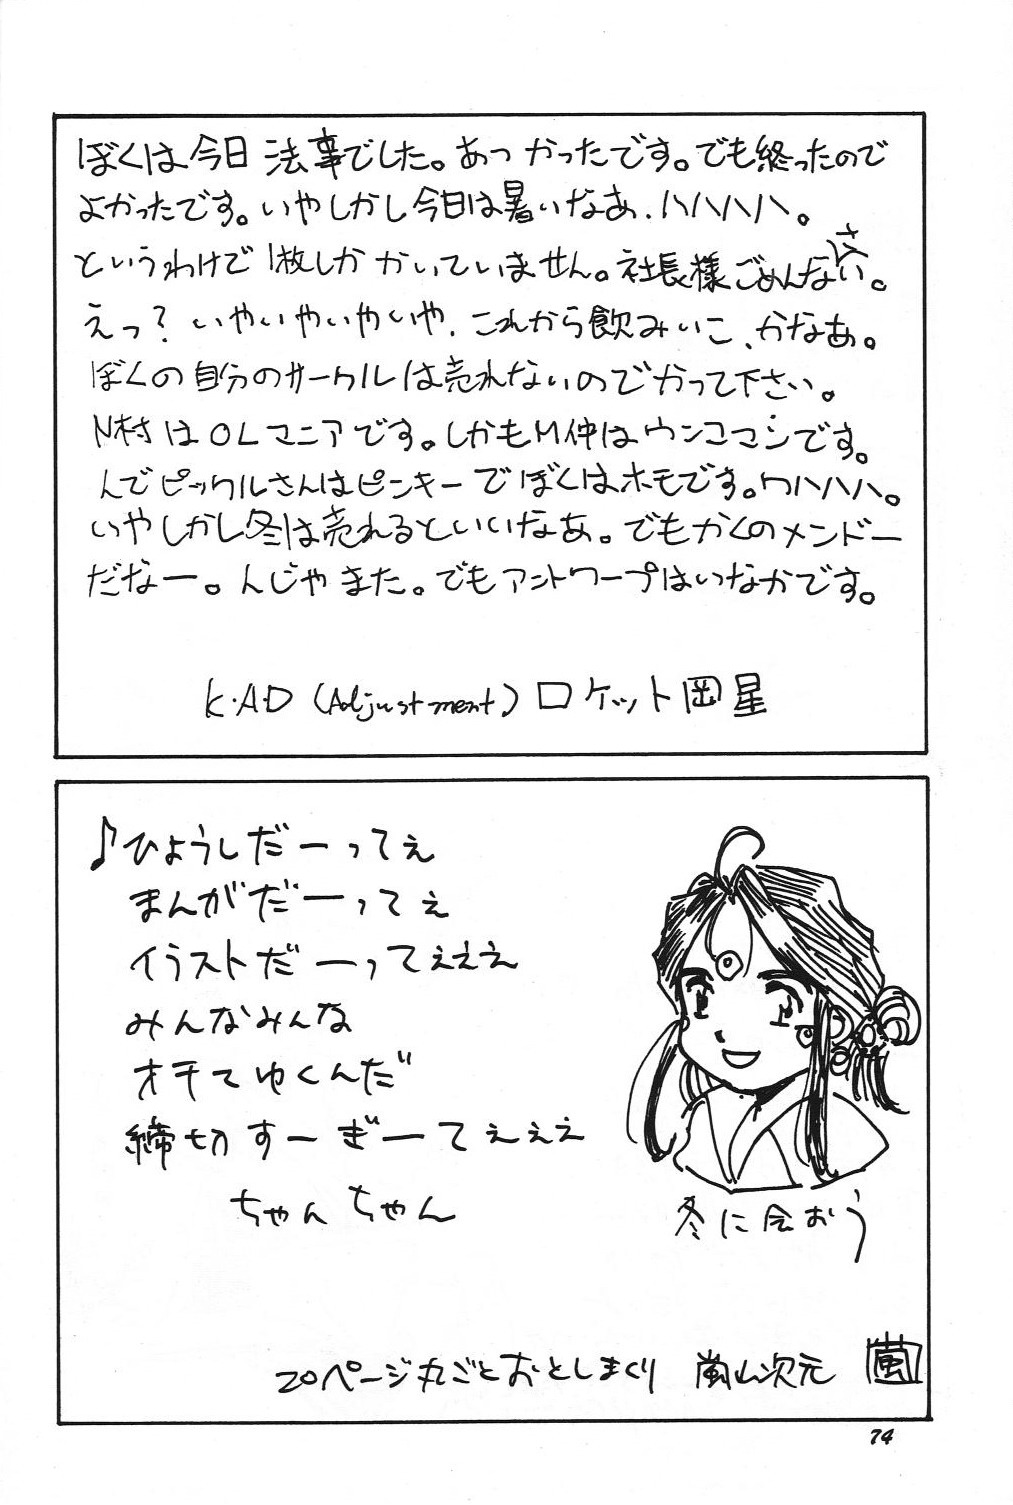 ぼくは今日法事でした。あつかったです。でも終ったので
よかったです。いやしかし今日は暑いなあ.ハハハハ。
というわけで1枚しかかいていません。社長様ごめんなさい。
えっ?いやいやいやいや.これから飲みいこ、かなあ。
ぼくの自分のサークルは売れないのでかって下さい。
N村はOLマニアです。しかもM仲はウンコマシです。
んでピックルさんはピンキーでぼくはホモです。ワハハハ。
いやしかし冬は売れるといいなあ。でもかくのメンドー
だなー。んじゃまた。でもアントワープはいなかです。
K・A・D(Adjustment)ロケット岡星
♪ひょうしだーってぇ
まんがだーってぇ
イラストだーってぇぇぇ
みんなみんな
オチてゆくんだ
締切すーぎーてぇぇぇ
ちゃんちゃん
冬に会おう
20ページ丸ごとおとしまくり 嵐山次元 嵐
74